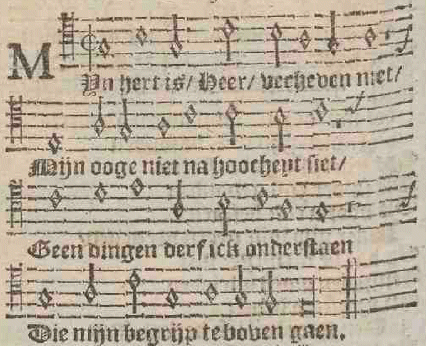 MYn hert is/ Heer/ verheven niet/
Mijn ooge niet na hoocheyt siet/
Geen dingen derf ick onderstaen
Die mijn begrijp te boven gaen.